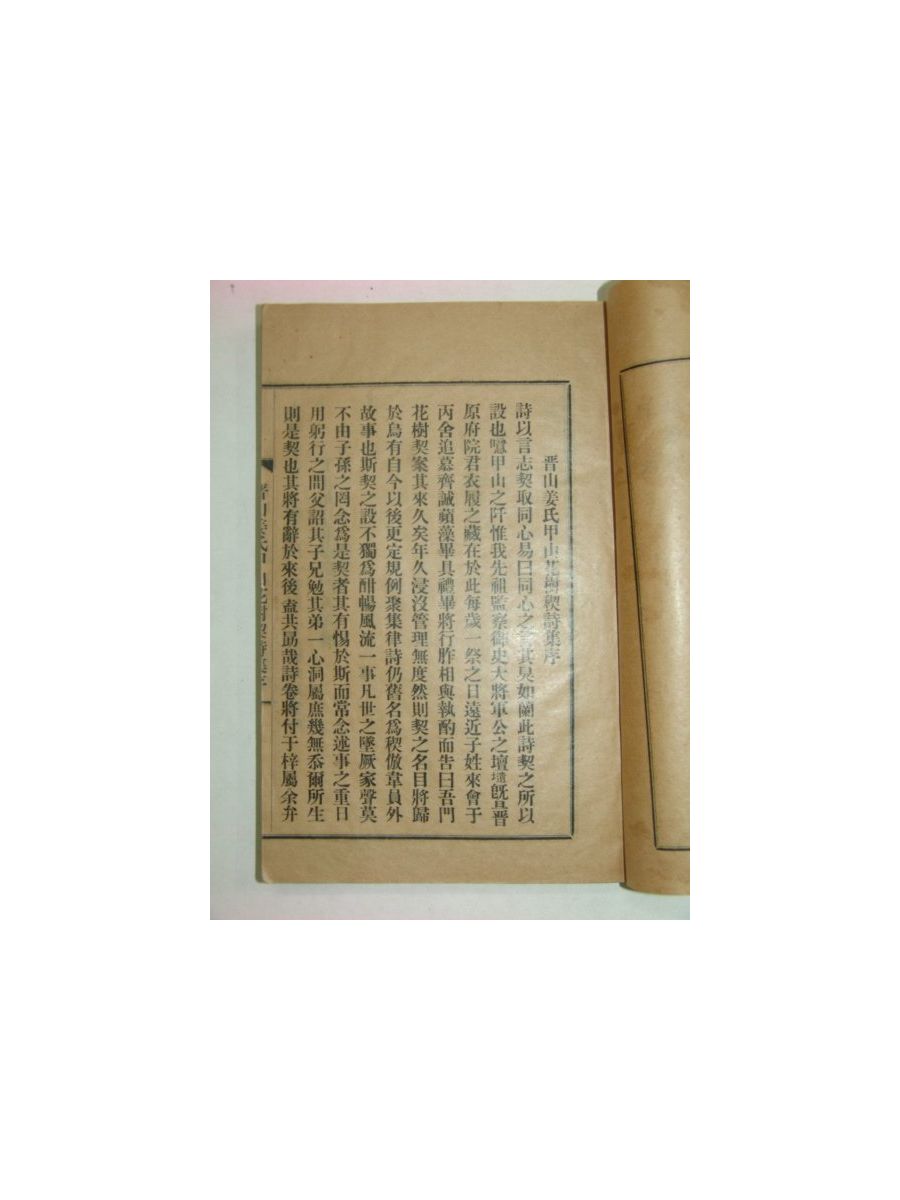 晋山姜氏甲山花樹稧詩集序
詩以言志契取同心易曰同心之言其臭如蘭此詩契之所以
設也噫甲山之阡惟我先祖監察御史大將軍公之壇壝曁晋
原府院君衣履之藏在於此每歲一祭之日遠近子姓來會于
丙舍追慕齊誠蘋藻畢具禮畢將行胙相與執酌而告曰吾門
花樹契案其來久矣年久浸沒管理無度然則契之名目將歸
於烏有自今以後更定規例聚集律詩仍舊名爲稧倣韋員外
故事也斯契之設不獨爲酣暢風流一事凡世之墜厥家聲莫
不由子孫之罔念爲是契者其有惕於斯而常念述事之重日
用躬行之間父詔其子兄勉其弟一心洞屬庶幾無忝爾所生
則是契也其將有辭於來後盍共勗哉詩卷將付于梓屬余弁